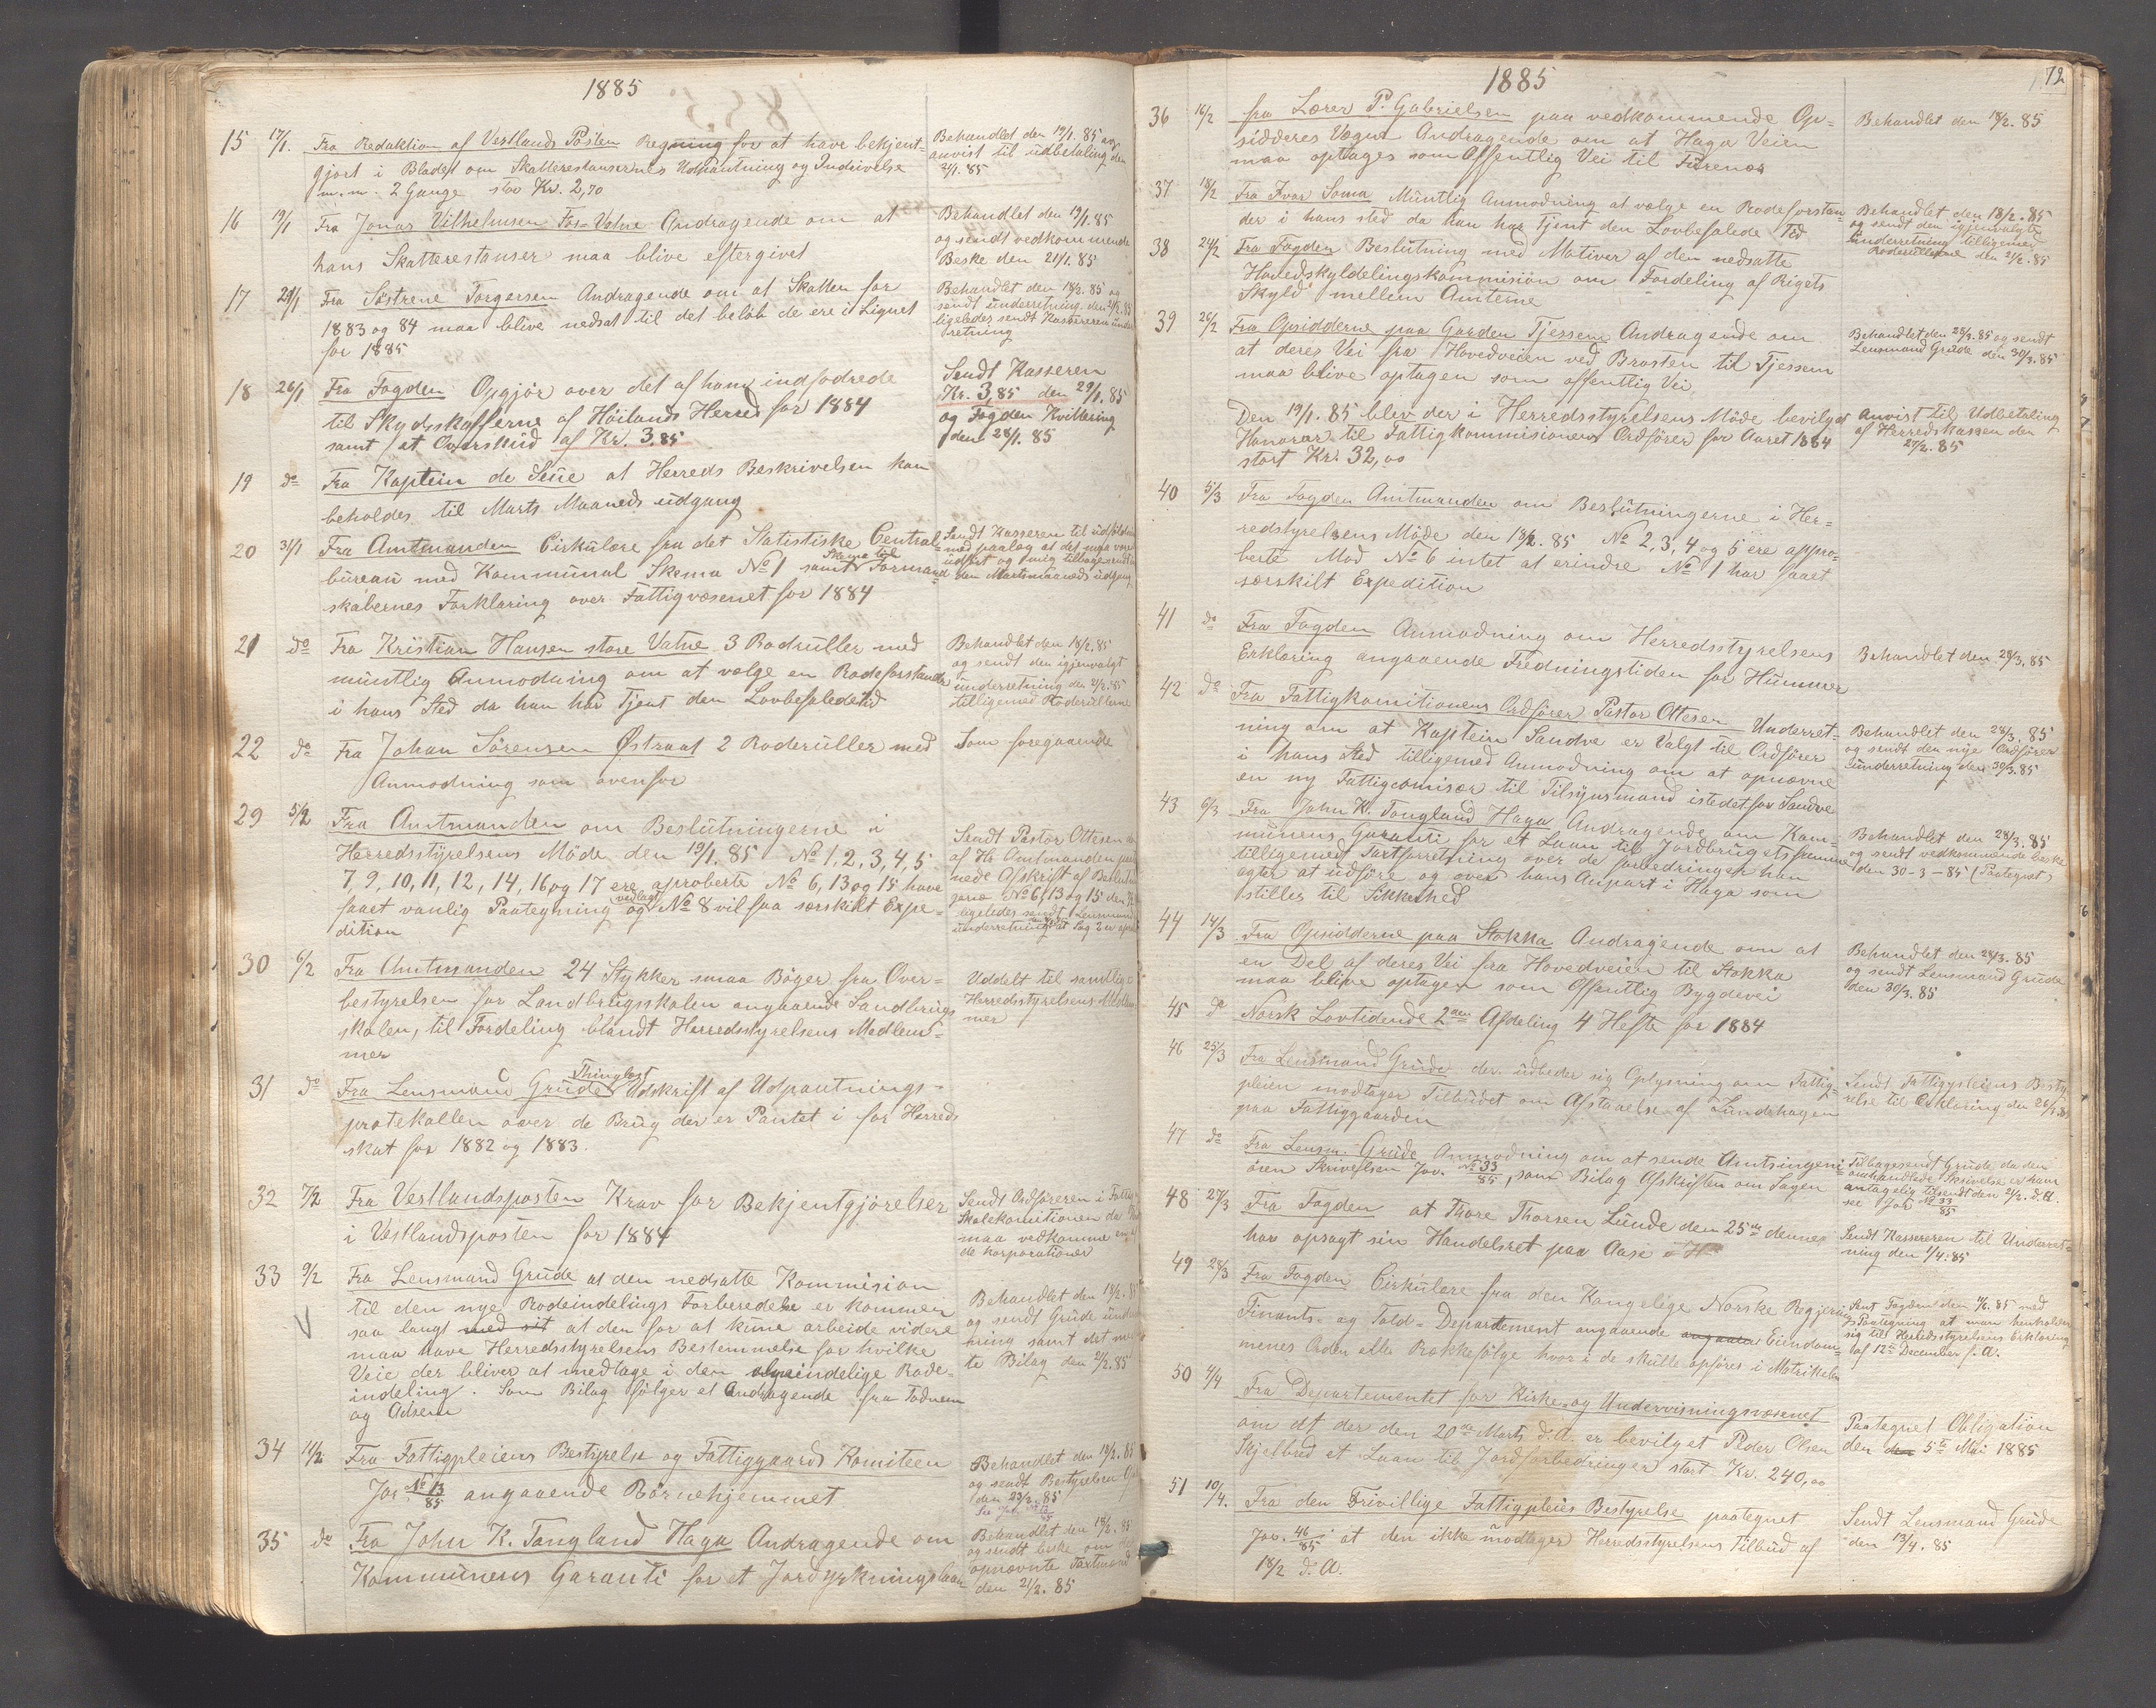 1885
15 17/1. Fra Redaktion af Vestlands Posten Regning for at have bekjent-
gjort i Bladet om Skatterestansernes Udpantning og Inddrivelse
m. m. 2 Gange stor Kr. 2,70
Behandlet den 19/1. 85 og
anvist til udbetaling den
21/1. 85
16 19/1 Fra Jonas Vilhelmsen Fos-Vatne Andragende om at
hans Skatterestanser maa blive eftergivet
Behandlet den 19/1. 85
og sendt vedkommende
Beske den 21/1. 85
17 21/1 Fra Söstrene Torgersen Andragende om at Skatten for
1883 og 84 maa blive nedsat til det beløb de ere i Lignet
for 1885
Behandlet den 18/2. 85 og
sendt underretning den 21/2. 85
ligeledes sendt Kassereren under
retning
18 26/1 Fra Fogden Opgjör over det af ham indfodrede
til Skydsskafferne af Höilands Herred for 1884
samt et Overskud af Kr. 3,85
Sendt Kasseren
Kr. 3,85 den 29/1. 85
og Fogden Kvittering
den 28/1. 85
19 do Fra Kaptein de Seue at Herreds Beskrivelsen kan
beholdes til Marts Maaneds udgang
20 31/1 Fra Amtmanden Cirkulære fra det Statistiske Central-
bureau med Kommunal Skema No 1 samt Skema til Formand
skabernes Forklaring over Fattigvæsenet for 1884
Sendt Kasseren til udfyldning
med paalæg at det maa være
udført og mig tilbagesendt in
den Martsmaaneds udgang
21 do Fra Kristian Hansen store Vatne 3 Roderuller med
mundtlig Anmodning om at vælge en Rodeforstander
i hans Sted da han har Tjent den Lovbefalede tid
Behandlet den 18/2. 85
og sendt den igjenvalgt
underretning den 21/2. 85
tilligemed Roderullerne
22 do Fra Johan Sörensen Østraat 2 Roderuller med
Anmodning som ovenfor
Som foregaaende
29 5/2 Fra Amtmanden om Beslutningerne i
Herredsstyrelsens Möde den 19/1. 85 No 1, 2, 3, 4, 5
7, 9, 10, 11, 12, 14, 16 og 17 ere aproberte No 6, 13 og 15 have
faaet vanlig Paategning vedlagt og No 8 vil faa særskilt Expe-
dition
Sendt Pastor Ottesen
af Hr Amtmanden
nede Afskrift af Beslut
No 6, 13 og 15 den
ligeledes sendt Lensmand
underretning at Sag 2 er
30 6/2 Fra Amtmanden 24 Stykker smaa Böger fra Over-
bestyrelsen for Landbrugsskolen angaaende Landbrugs
skolen, til Fordeling blandt Herredsstyrelsens Medlem-
mer
Uddelt til samtlige
Herredsstyrelsens Medlem
mer
31 do Fra Lensmand Grude Thinglæst Udskrift af Udpantnings-
protokollen over de Brug der er Pantet i for Herreds
skat for 1882 og 1883.
32 7/2 Fra Vestlandsposten Krav for Bekjentgjörelser
i Vestlandsposten for 1884
Sendt Ordføreren i Fattig
Skolekomitionen da
maa vedkomme
de korporationer
33 9/2 Fra Lensmand Grude at den nedsatte Kommision
til den nye Rodeindelings Forberedelse er kommen
saa langt med sit at den for at kune arbeide videre
maa have Herredsstyrelsens Bestemmelse for hvilke
Veie der bliver at medtage i den almindelige Rode-
indeling. Som Bilag følger et Andragende fra Todnem
og Adsem
Behandlet den 18/2. 85
og sendt Grude under
samt det
te Bilag den 21/2. 85
34 11/2 Fra Fattigpleiens Bestyrelse og Fattiggaards Komiteen
Jor No 13/85 angaaende Börnehjemmet.
Behandlet den 18/2. 85
og sendt Bestyrelsen
den 23/2. 85
35 do Fra John K. Tongland Haga Andragende om
Kommunens Garanti for et Jorddyrkningslaan
Behandlet den 18/2. 85
og sendt beske om de
opnævnte Taxtmænd
den 21/2. 85
1885
72
36 16/2 fra Lærer P. Gabrielsen paa vedkommende Op-
sidderes Vegne Andragende om at Haga Veien
maa optages som Offentlig Vei til Furenes
Behandlet den 18/2. 85
37 18/2 Fra Ivar Soma Mundtlig Anmodning at vælge en Rodeforstan-
der i hans sted da han har Tjent den Lovbefalede Tid
Behandlet den 18/2. 85
og sendt den igjenvalgte
underretning tilligemed
Roderullerne den 21/2. 85
38 24/2 Fra Fogden Beslutning med Motiver af den nedsatte
Hovedskyldelingskommision om Fordeling af Rigets
Skyld mellem Amterne
39 26/2 Fra Opsidderne paa Garden Tjessem Andragende om
at deres Vei fra Hovedveien ved Brasten til Tjessem
maa blive optagen som offentlig Vei
Behandlet den 28/3. 85 og sendt
Lensmand Grude den 30/3. 85
Den 19/1. 85 blev der i Herredsstyrelsens Möde bevilget
Honorar til Fattigkommisionens Ordfører for Aaret 1884
stort Kr. 32,00
Anvist til Udbetaling
af Herredskassen den
27/2. 85
40 5/3 Fra Fogden Amtmanden om Beslutningerne i Her-
redsstyrelsens Möde den 18/2. 85 No 2, 3, 4 og 5 ere appro-
berte Mod No 6 intet at erindre No 1 har faaet
særskilt Expedition
41 do Fra Fogden Anmodning om Herredsstyrelsens
Erklæring angaaende Fredningstiden for Hummer
Behandlet den 28/3. 85
42 do Fra Fattigkomitionens Ordfører Pastor Ottesen Underret-
ning om at Kaptein Sandve er Valgt til Ordfører
i hans Sted tilligemed Anmodning om at opnævne
en ny Fattigcomisær til Tilsynsmand istedetfor Sandve
Behandlet den 28/3. 85
og sendt den nye Ordfører
underretning den 30/3. 85
43 6/3 Fra John K. Tongland Haga Andragende om Kom-
munens Garanti for et Laan til Jordbrugets fremme
tilligemed Taxtforretning over de forbedringer han
agter at udføre og over hans Anpart i Haga som
stilles til Sikkerhed
Behandlet den 28/3. 85
og sendt vedkommende beske
den 30-3-85 (Paategnet)
44 14/3 Fra Opsidderne paa Stokka Andragende om at
en Del af deres Vei fra Hovedveien til Stokka
maa blive optagen som Offentlig Bygdevei
Behandlet den 28/3. 85
og sendt Lensmand Grude
den 30/3. 85
45 do Norsk Lovtidende 2den Afdeling 4 Hefte for 1884
46 25/3 Fra Lensmand Grude der udbeder sig Oplysning om Fattig-
pleien modtager Tilbudet om Afstaaelse af Lundehagen
paa Fattiggaarden
Sendt Fattigpleiens Besty
relse til Erklæring den 26/3. 85
47 do Fra Lensm. Grude Anmodning om at sende Amtsingeni-
ören Skrivelsen Jor. No 33/85, som Bilag Afskriften om Sagen
Tilbagesendt Grude da den
omhandlede Skrivelse er ham
antagelig tilsendt den 21/2. d. A.
se Jor No 33/85
48 27/3 Fra Fogden at Thore Thorsen Lunde den 25de dennes
har opsagt sin Handelsret paa Aase
Sendt Kassereren til Underret-
ning den 1/4. 85
49 28/3 Fra Fogden Cirkulære fra den Kongelige Norske Regjerings
Finants- og Told-Departement angaaende Eiendom-
menes Orden eller Rækkefölge hvori de skulle opføres i Matrikelen
Sent Fogden den 11/4. 85 med
Paategning at man henholder
sig til Herredsstyrelsens Erklæring
af 12te December f. A.
50 4/4 Fra Departementet for Kirke og Undervisningsvæsenet
om at der den 20de Marts d. A. er bevilget Peder Olsen
Skjelbred et Laan til Jordforbedringer stort Kr. 240,00
Paategnet Obligation
den 5te Mai 1885
51 10/4. Fra den Frivillige Fattigpleies Bestyrelse paategnet
Jor. 46/85 at den ikke modtager Herredsstyrelsens Tilbud af
18/2 d. A.
Sendt Lensmand Grude
den 13/4. 85